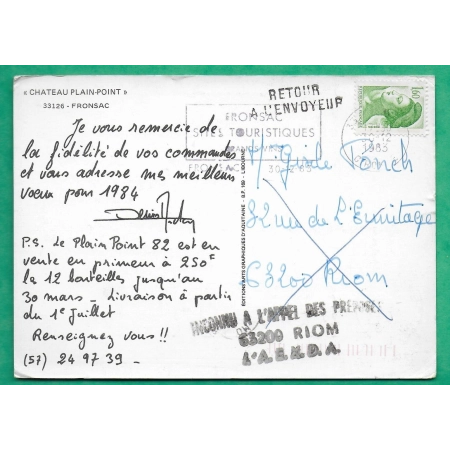 « CHATEAU PLAIN-POINT »
33126 - FRONSAC
Je vous remercie de
la fidélité de vos commandes
et vous adresse mes meilleurs
voeux pour 1984
P.S. Le Plain Point 82 est en
vente en primeur à 250F
la 12 bouteilles jusqu'au
30 mars - livraison à partir
du 1er Juillet
Renseignez vous !!
(57) 24 97 39 -
EDITIONS ARTS GRAPHIQUES D'AQUITAINE - B.P. 169 - LIBOURNE
RETOUR
A L'ENVOYEUR
FRONSAC
SITES TOURISTIQUES
1,60
1983
32 rue de L'Ermitage
63200 Riom
INCONNU A L'APPEL DES PREPOSES
63200 RIOM